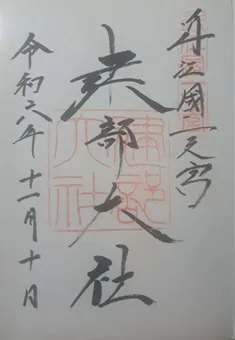 近江國一之宮
建部大社
建部
大社
令和六年十一月十日